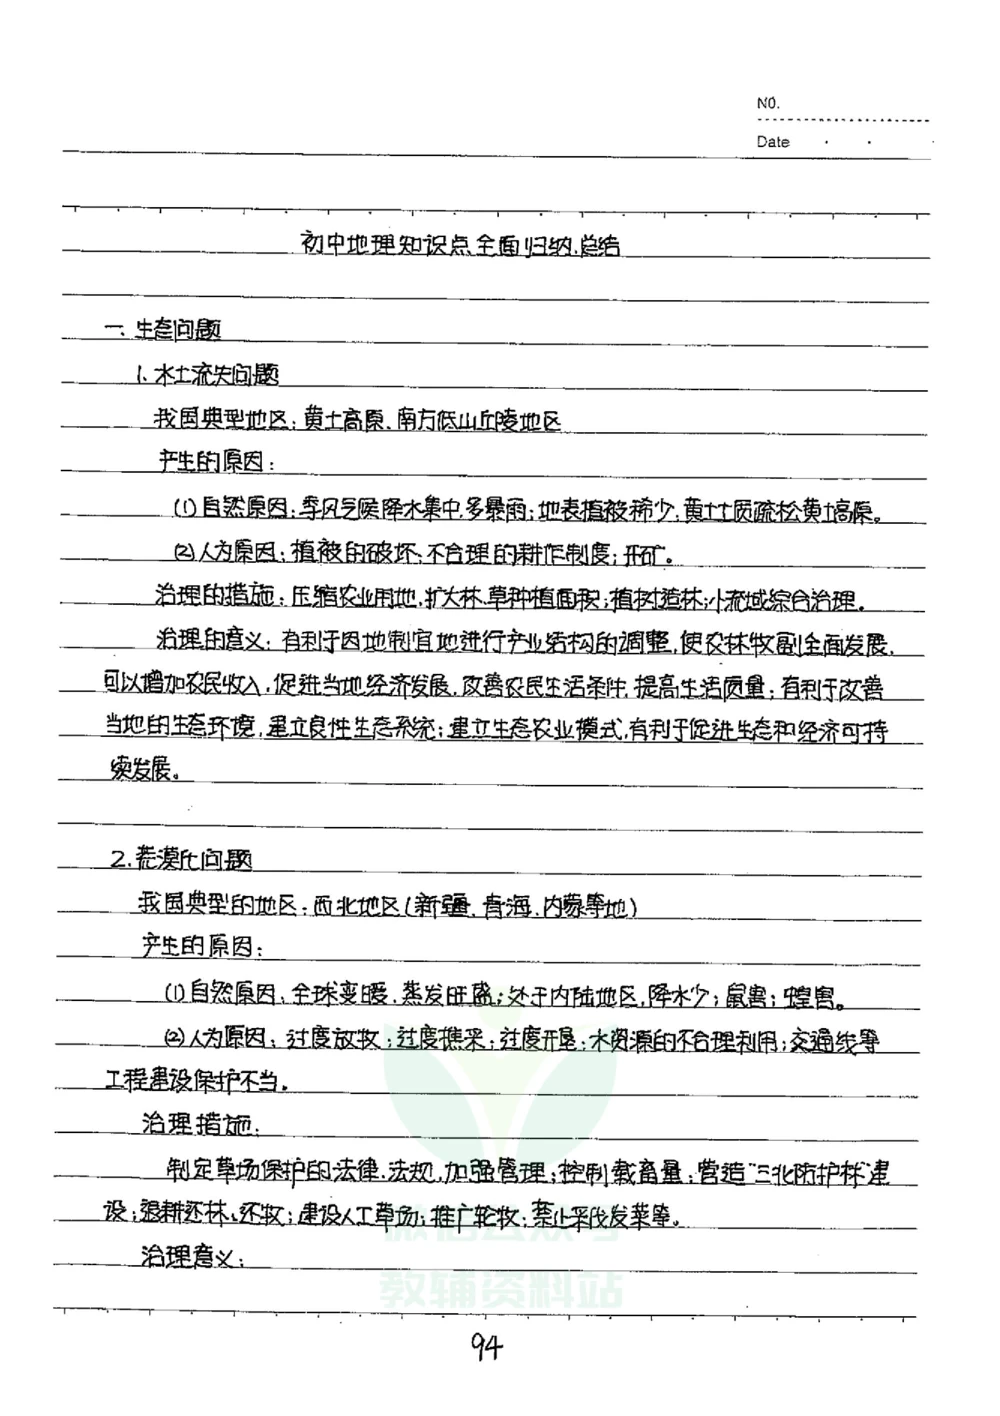 NO.
Date
初中地理知识点全面归纳总结
一、生态问题
1、水土流失问题
我国典型地区：黄土高原、南方低山丘陵地区
产生的原因：
(1)自然原因：季风气候降水集中，多暴雨；地表植被稀少；黄土土质疏松黄土高原。
(2)人为原因：植被的破坏；不合理的耕作制度；开矿。
治理的措施：压缩农业用地，扩大林、草种植面积；植树造林；小流域综合治理。
治理的意义：有利于因地制宜地进行产业结构的调整，使农林牧副全面发展，
可以增加农民收入，促进当地经济发展，改善农民生活条件，提高生活质量；有利于改善
当地的生态环境，建立良性生态系统；建立生态农业模式，有利于促进生态和经济可持
续发展。
2.荒漠化问题
我国典型的地区：西北地区(新疆、青海、内蒙等地)
产生的原因：
(1)自然原因：全球变暖，蒸发旺盛；处于内陆地区，降水少；鼠害；蝗害。
(2)人为原因：过度放牧；过度樵采；过度开垦；水资源的不合理利用；交通线等
工程建设保护不当。
治理措施：
制定草场保护的法律、法规，加强管理；控制载畜量；营造"三北防护林"建
设；退耕还林、还牧；建设人工草场；推广轮牧；禁止采伐发菜等。
治理意义：
微信公众号
教辅资料站
94